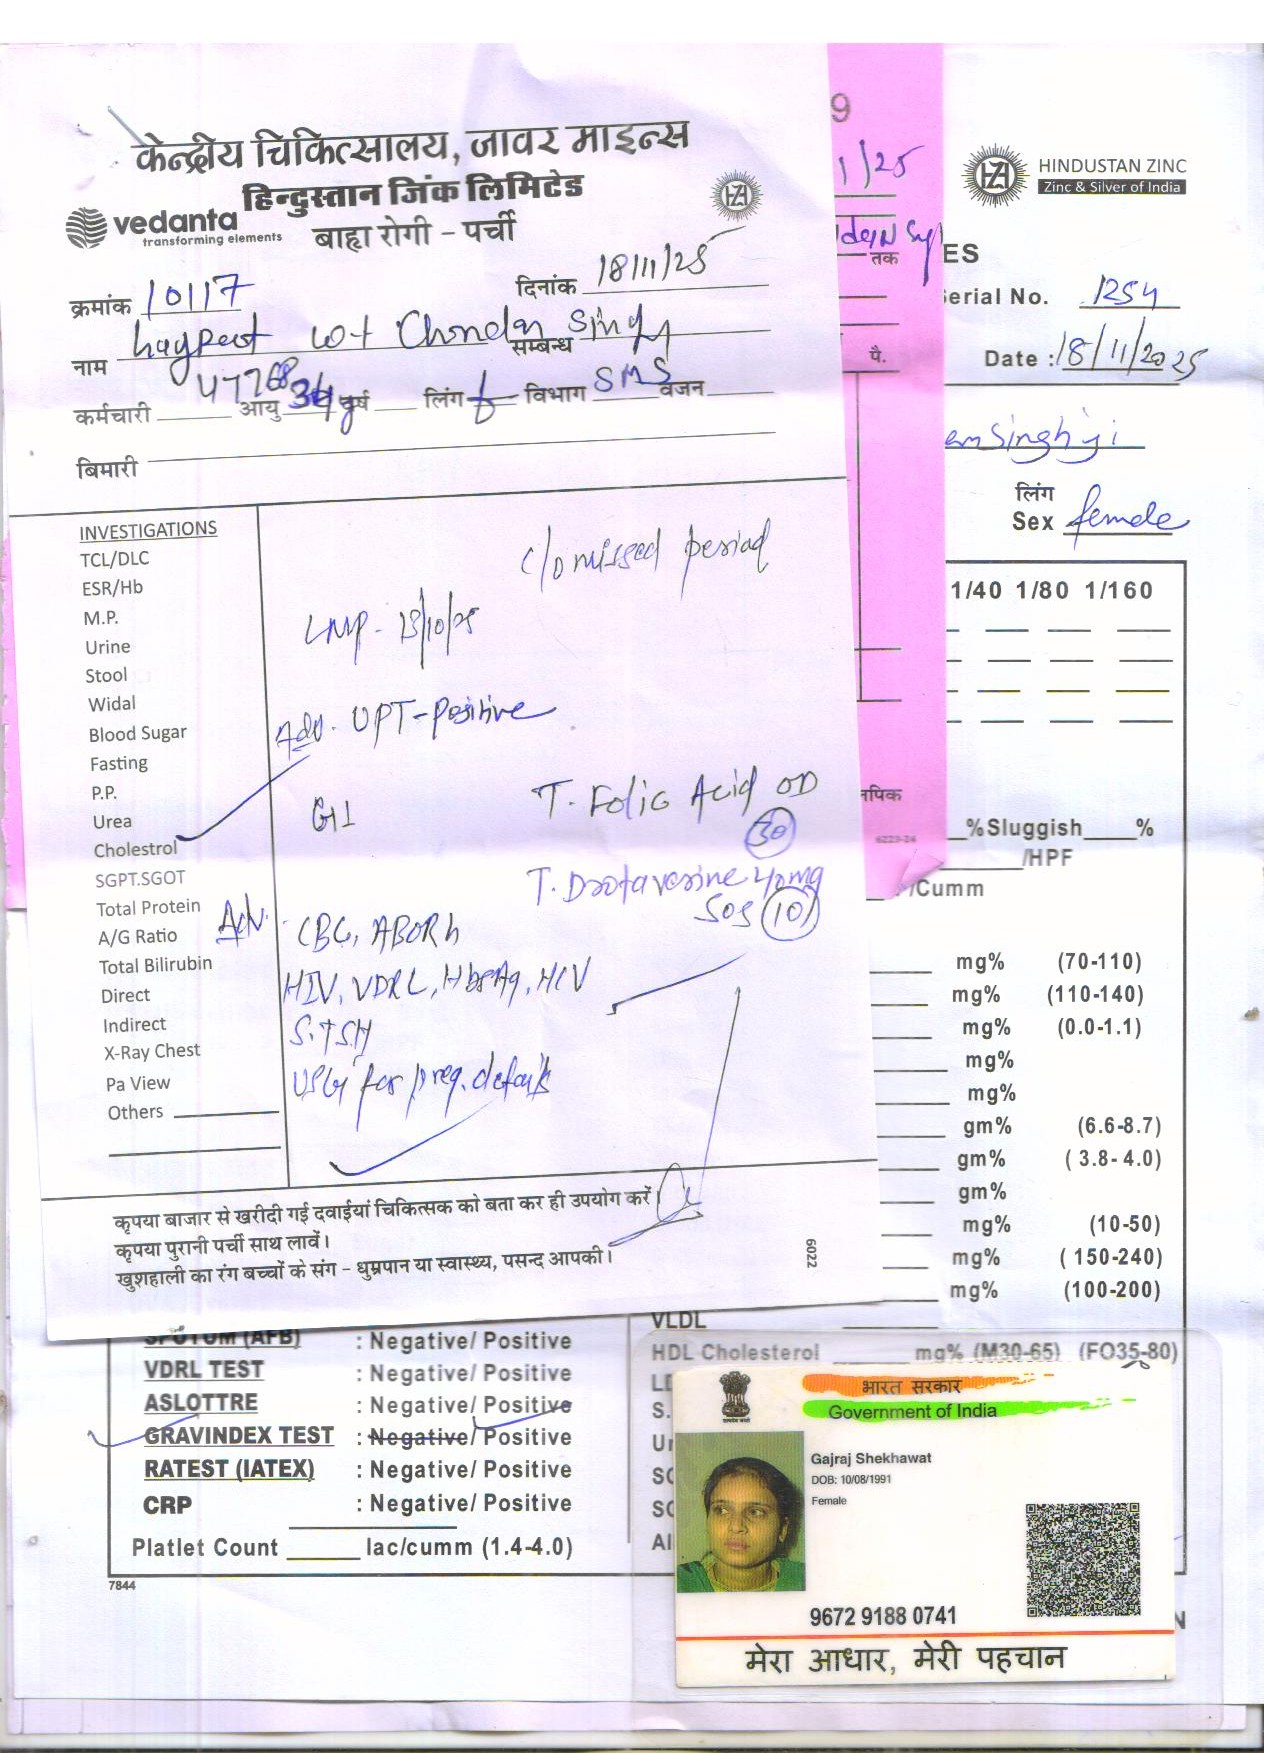 केन्द्रीय चिकित्सालय, जावर माइन्स
हिन्दुस्तान जिंक लिमिटेड
vedanta
transforming elements
बाह्य रोगी - पर्ची
क्रमांक 10117
दिनांक 18/11/25
नाम w/o Chandan Singh
सम्बन्ध
कर्मचारी 47768 आयु 34 वर्ष लिंग f विभाग SMS वजन
बिमारी
INVESTIGATIONS
TCL/DLC
ESR/Hb
M.P.
Urine
Stool
Widal
Blood Sugar
Fasting
P.P.
Urea
Cholestrol
SGPT.SGOT
Total Protein
A/G Ratio
Total Bilirubin
Direct
Indirect
X-Ray Chest
Pa View
Others
c/o missed period
LMP - 13/10/25
Adv. UPT-Positive
G1
T. Folic Acid OD
30
T. Drotaverine 40mg
SOS 10
Adv. CBC, ABORh
HIV, VDRL, HbsAg, HCV
S.TSH
USG for preg. details
कृपया बाजार से खरीदी गई दवाईयां चिकित्सक को बता कर ही उपयोग करें।
कृपया पुरानी पर्ची साथ लावें।
खुशहाली का रंग बच्चों के संग - धुम्रपान या स्वास्थ्य, पसन्द आपकी।
6022
9
1/25
तक
पै.
6223-24
HINDUSTAN ZINC
Zinc & Silver of India
ES
erial No. 1254
Date : 18/11/2025
Singh ji
लिंग
Sex female
1/40 1/80 1/160
% Sluggish %
/HPF
/Cumm
mg% (70-110)
mg% (110-140)
mg% (0.0-1.1)
mg%
mg%
gm% (6.6-8.7)
gm% ( 3.8- 4.0)
gm%
mg% (10-50)
mg% ( 150-240)
mg% (100-200)
VLDL
HDL Cholesterol mg% (M30-65) (FO35-80)
SPUTUM (AFB) : Negative/ Positive
VDRL TEST : Negative/ Positive
ASLOTTRE : Negative/ Positive
GRAVINDEX TEST : Negative/ Positive
RATEST (IATEX) : Negative/ Positive
CRP : Negative/ Positive
Platlet Count lac/cumm (1.4-4.0)
7844
भारत सरकार
Government of India
Gajraj Shekhawat
DOB: 10/08/1991
Female
9672 9188 0741
मेरा आधार, मेरी पहचान